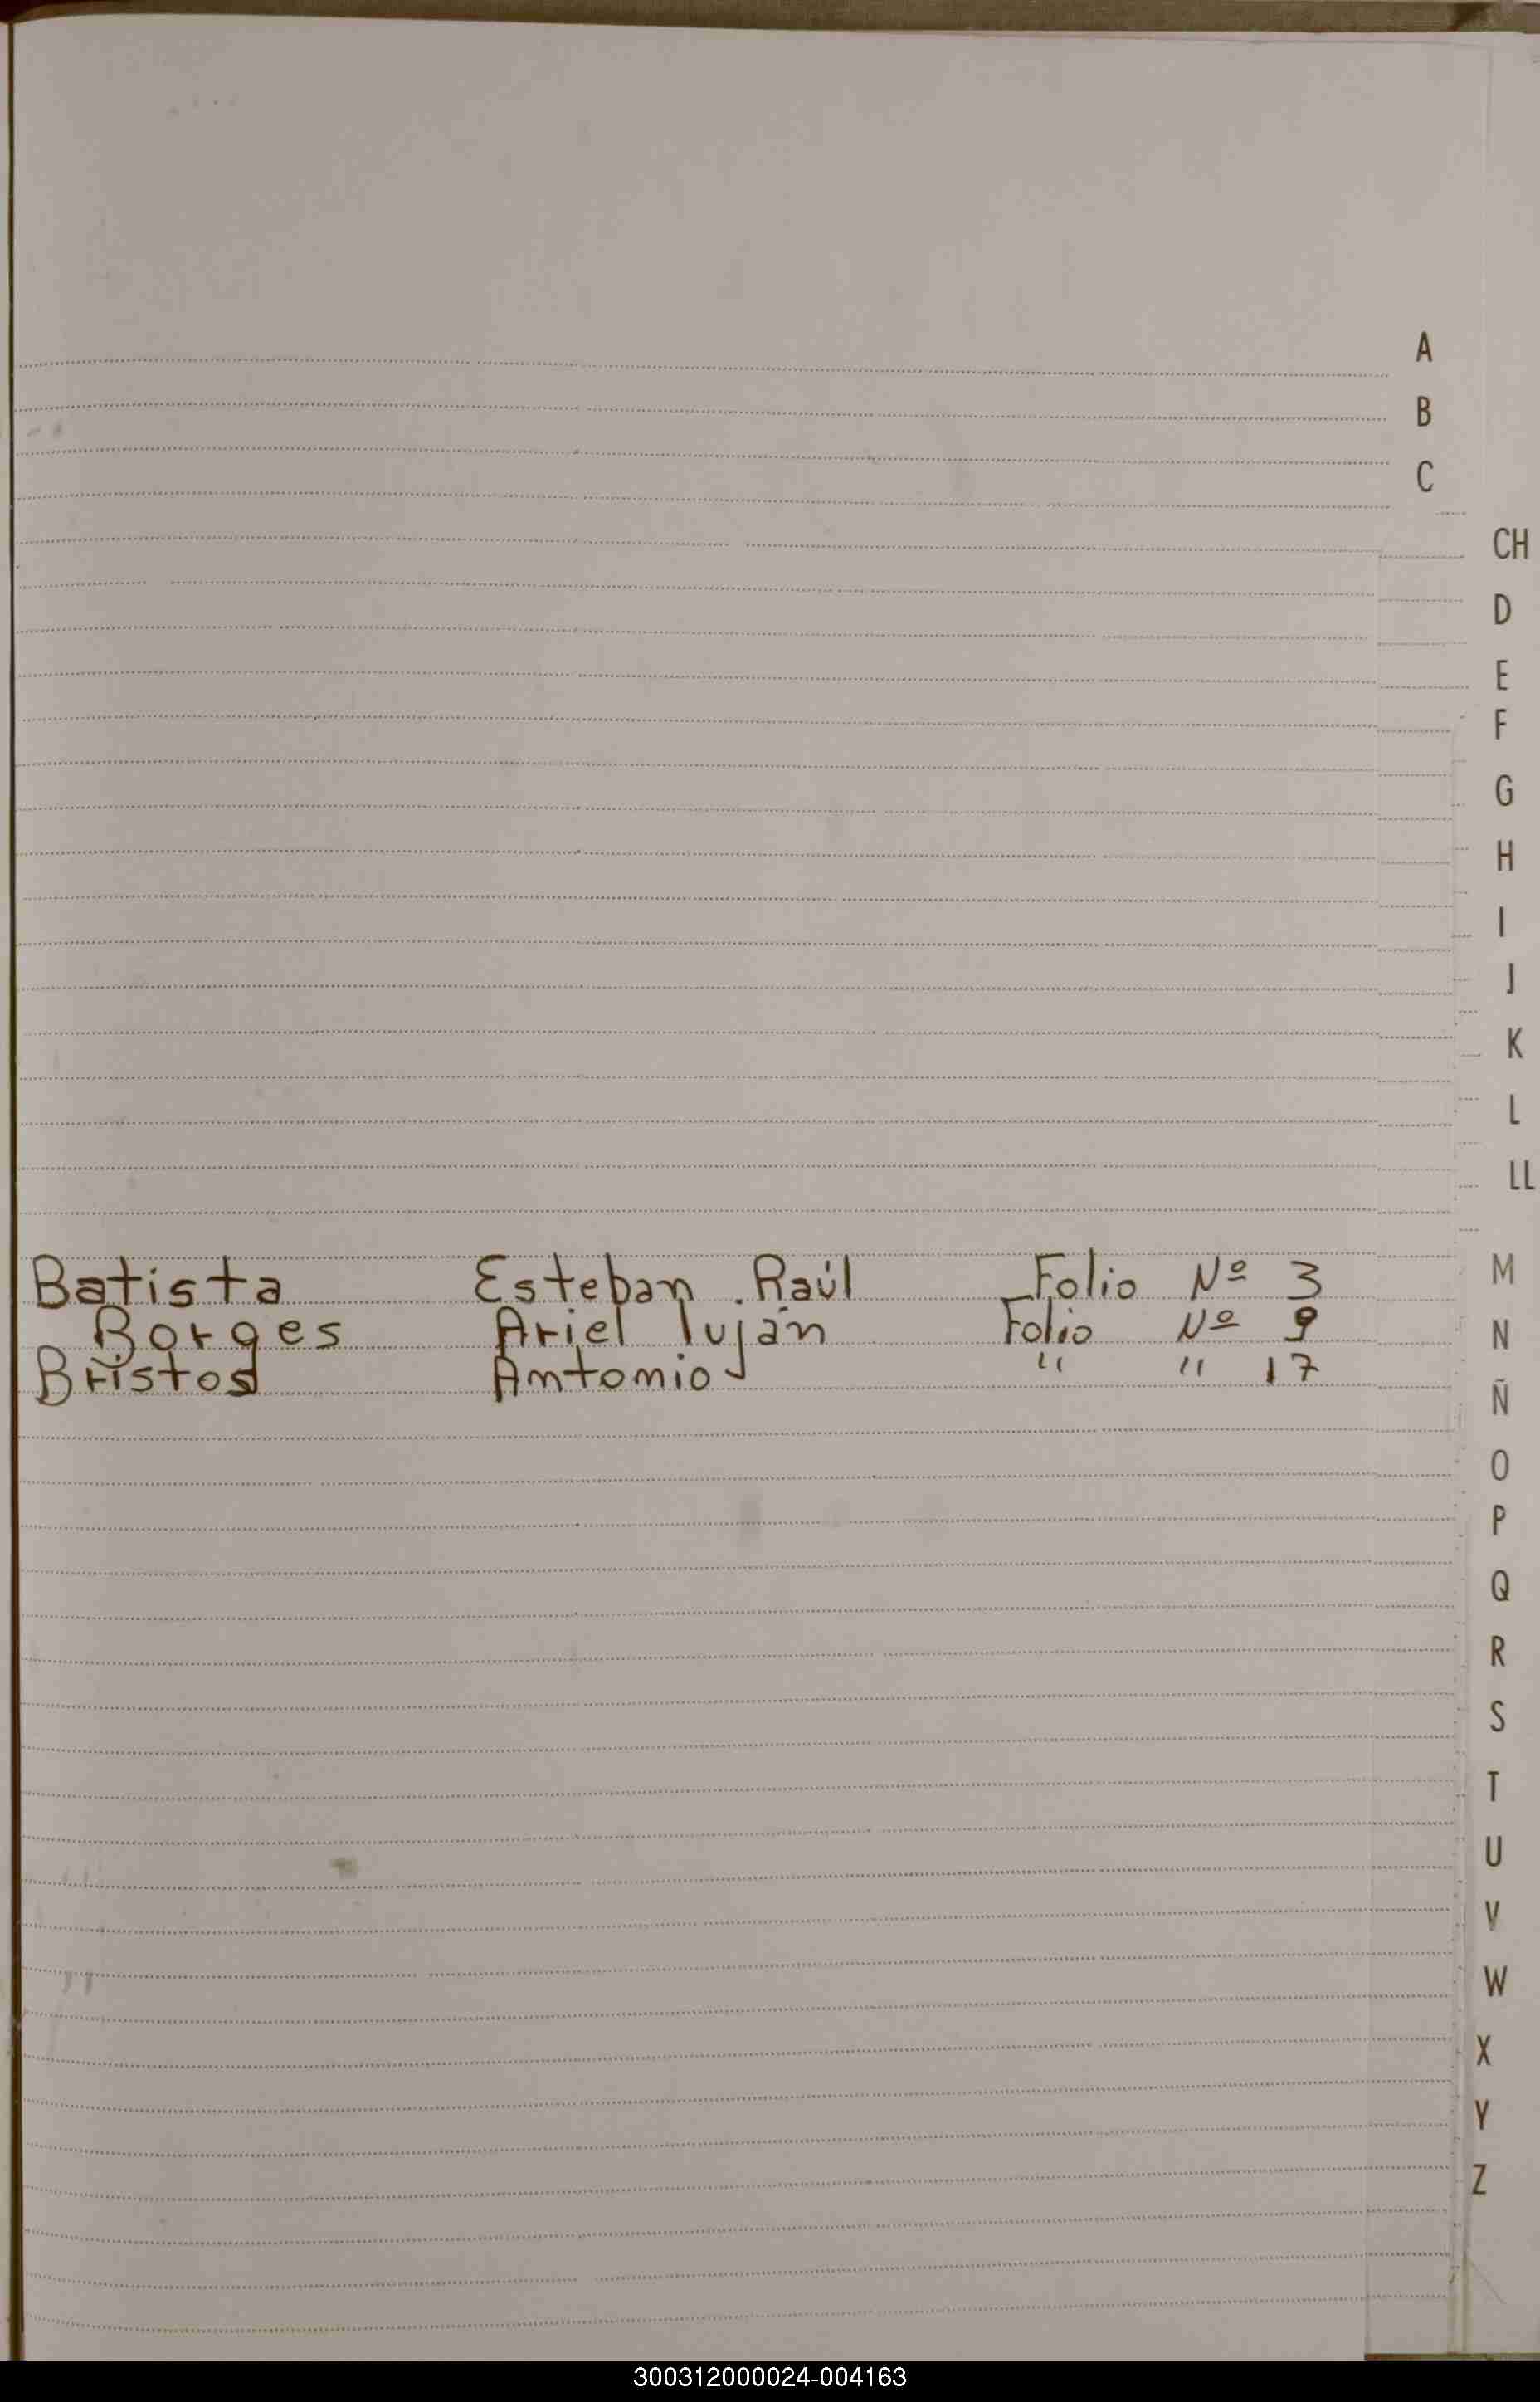 A
B
C
CH
D
E
F
G
H
I
J
K
L
LL
Batista Esteban Raúl Folio Nº 3
Borges Ariel Luján Folio Nº 9
Bristos Antonio " " 17
M
N
Ñ
O
P
Q
R
S
T
U
V
W
X
Y
Z
300312000024-004163